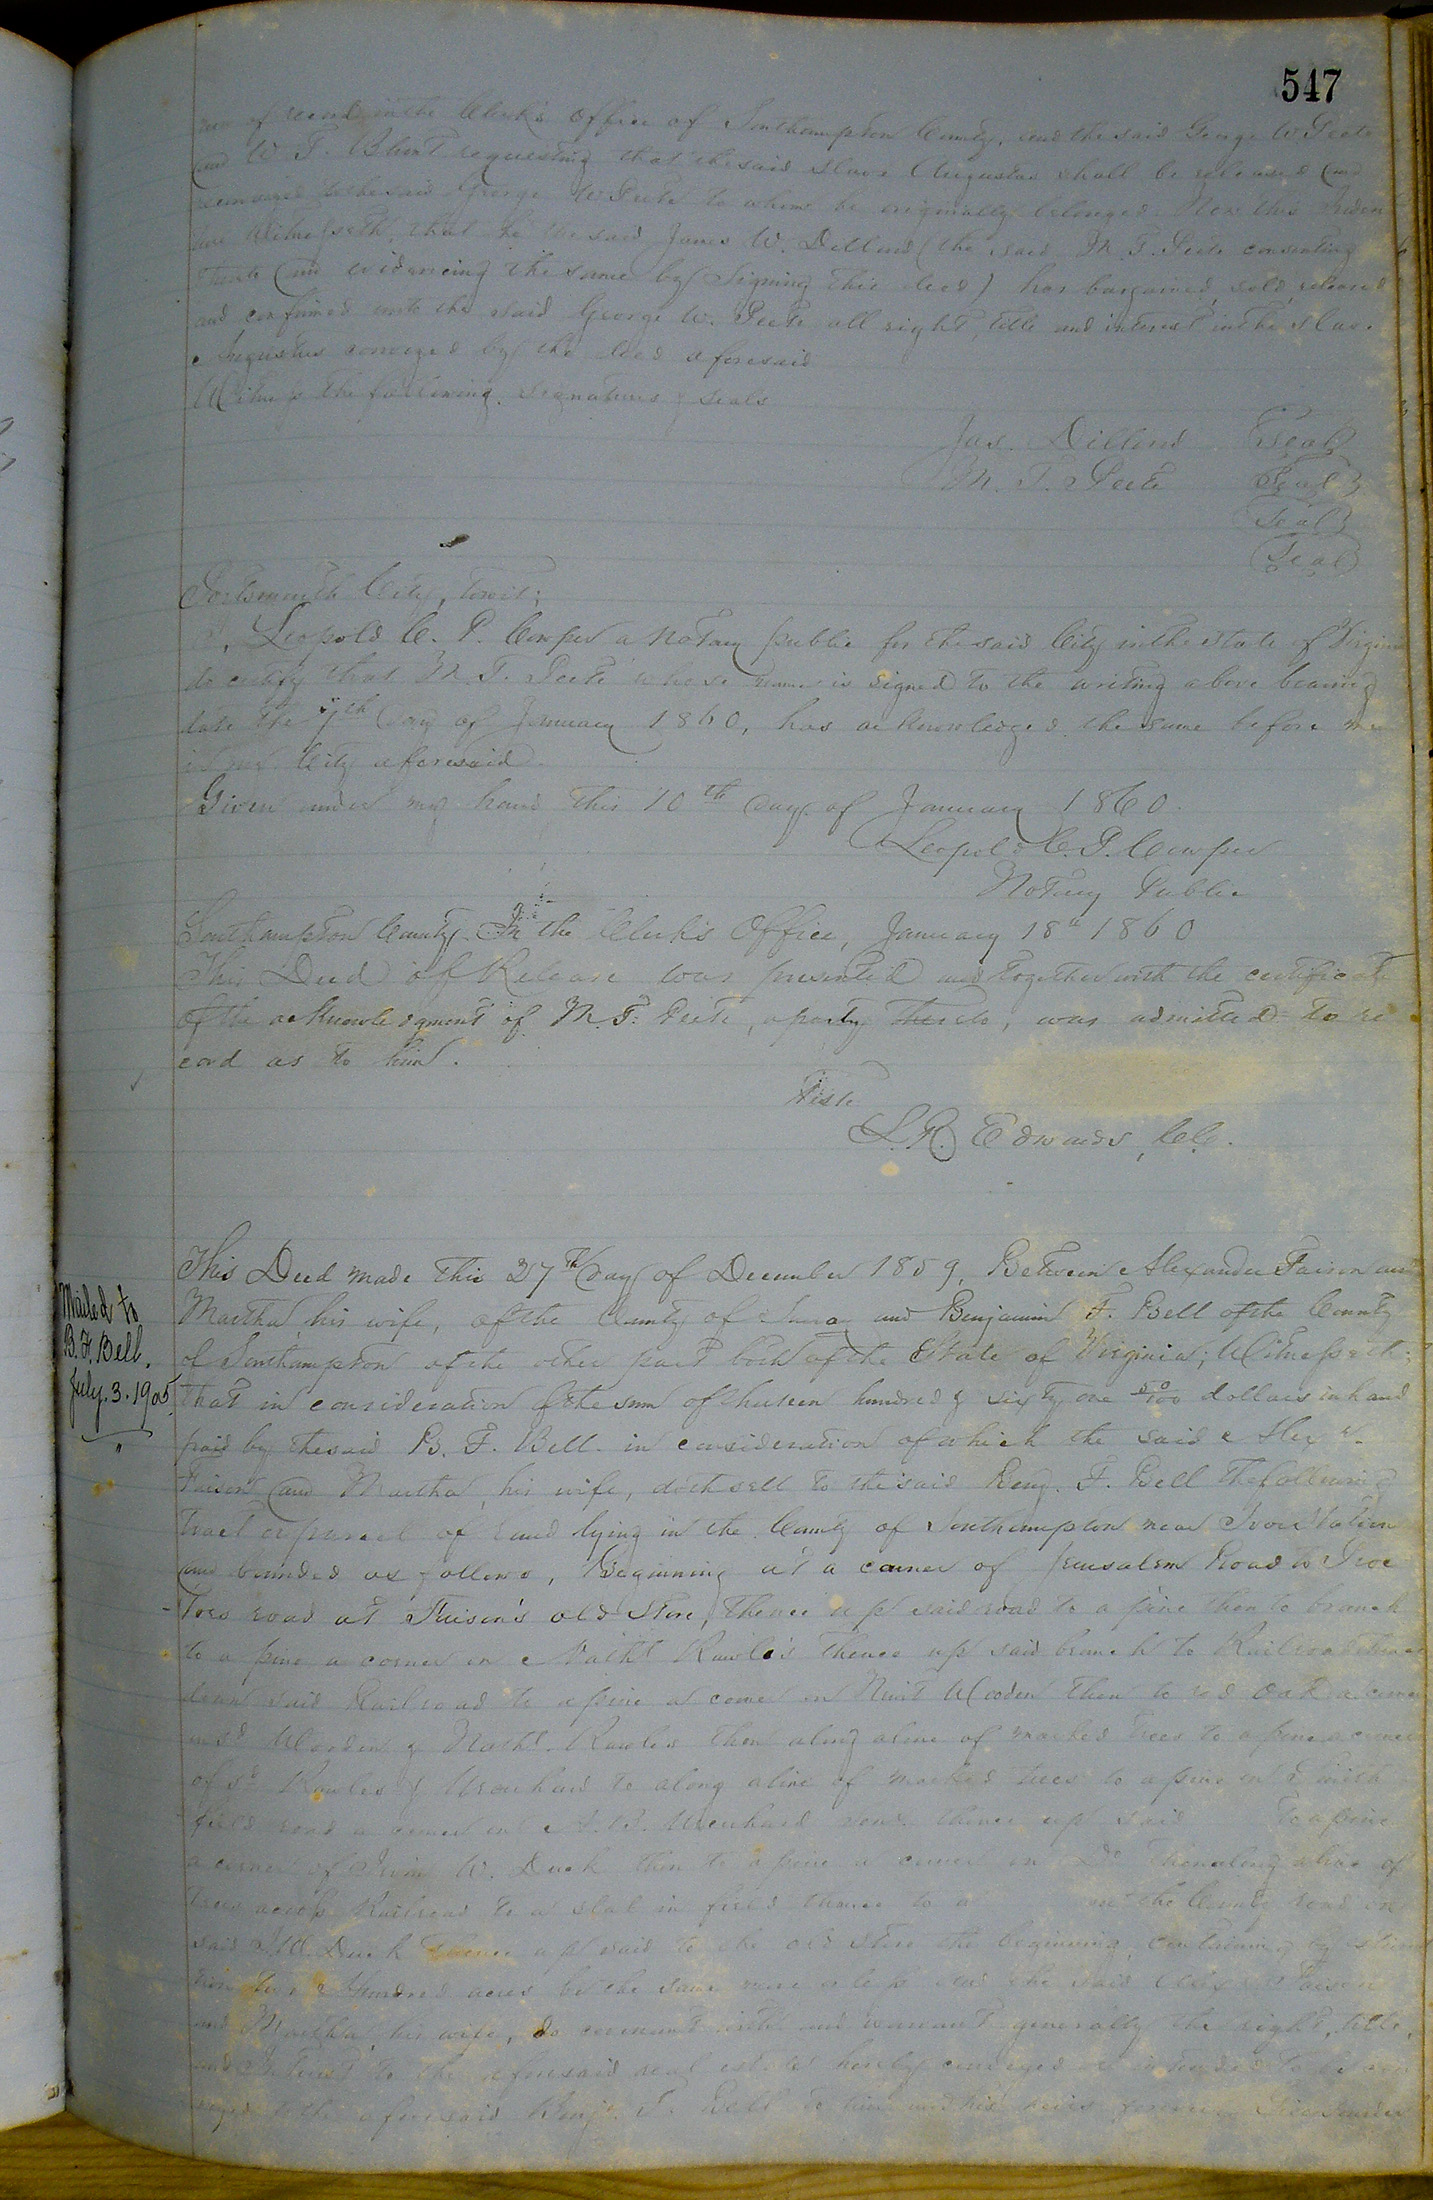 547
of record in the Clerk's Office of Southampton County, and the said George W Peete
and W. T. Blunt requesting that the said slave Augustus shall be released and
reconveyed to the said George W Peete to whom he originally belonged. Now this Inden
ture Witnesseth, that he the said James W. Dillard (the said M. T. Peete consenting
and evidencing the same by signing this deed) has bargained, sold, released
and confirmed unto the said George W. Peete all right, title and interest in the slave
Augustus conveyed by the deed aforesaid
Witness the following signatures & seals
Jas. Dillard Seal
M. T. Peete Seal
Seal
Seal
Portsmouth City, towit:
I, Leopold C. P. Cowper a Notary public for the said City in the state of Virginia
do certify that M. T. Peete whose name is signed to the writing above bearing
date the 7th day of January 1860, has acknowledged the same before me
in my City aforesaid.
Given under my hand this 10th day of January 1860.
Leopold C. P. Cowper
Notary Public
Southampton County. In the Clerk's Office, January 18th 1860
This Deed of Release was presented and together with the certificate
of the acknowledgment of M. T. Peete, a party thereto, was admitted to re
cord as to him.
Teste
L. R. Edwards, C.C.
Mailed to
B. F. Bell.
July. 3. 1905.
"
This Deed made this 27th day of December 1859, Between Alexander Faison and
Martha, his wife, of the County of Surry and Benjamin F. Bell of the County
of Southampton of the other part both of the State of Virginia; Witnesseth:
that in consideration of the sum of thirteen hundred & sixty one 50/100 dollars in hand
paid by the said B. F. Bell in consideration of which the said Alexr.
Faison and Martha, his wife, doth sell to the said Benj. F. Bell the following
tract or parcel of land lying in the County of Southampton near Ivor Station
and bounded as follows, Beginning at a corner of Jerusalem Road to Proc
tors road at Faison's old Store, thence up said road to a pine then to branch
to a pine a corner in Nathl Rawles thence up said branch to Railroad thence
down said Railroad to a pine a corner in Wooden then to red oak a corner
in sd Wooden & Nathl. Rawles then along a line of marked trees to a pine a corner
of sd Rawles & Urquhart to along a line of marked trees to a pine in
field road a corner in A. B. Urquhart thence up said to a pine
a corner of W. Duck then to a pine a corner in Do then along a line of
trees across Railroad to a stab in field thence to a the County road on
said Duck thence up said to the old store the beginning, containing by
hundred acres be the same more or less and the said Alexr Faison
and Martha, his wife, do covenant with and warrant generally the right, title,
and Interest to the aforesaid real estate hereby conveyed or intended to be con
veyed to the aforesaid Benj. F. Bell to him and his heirs forever. Given under